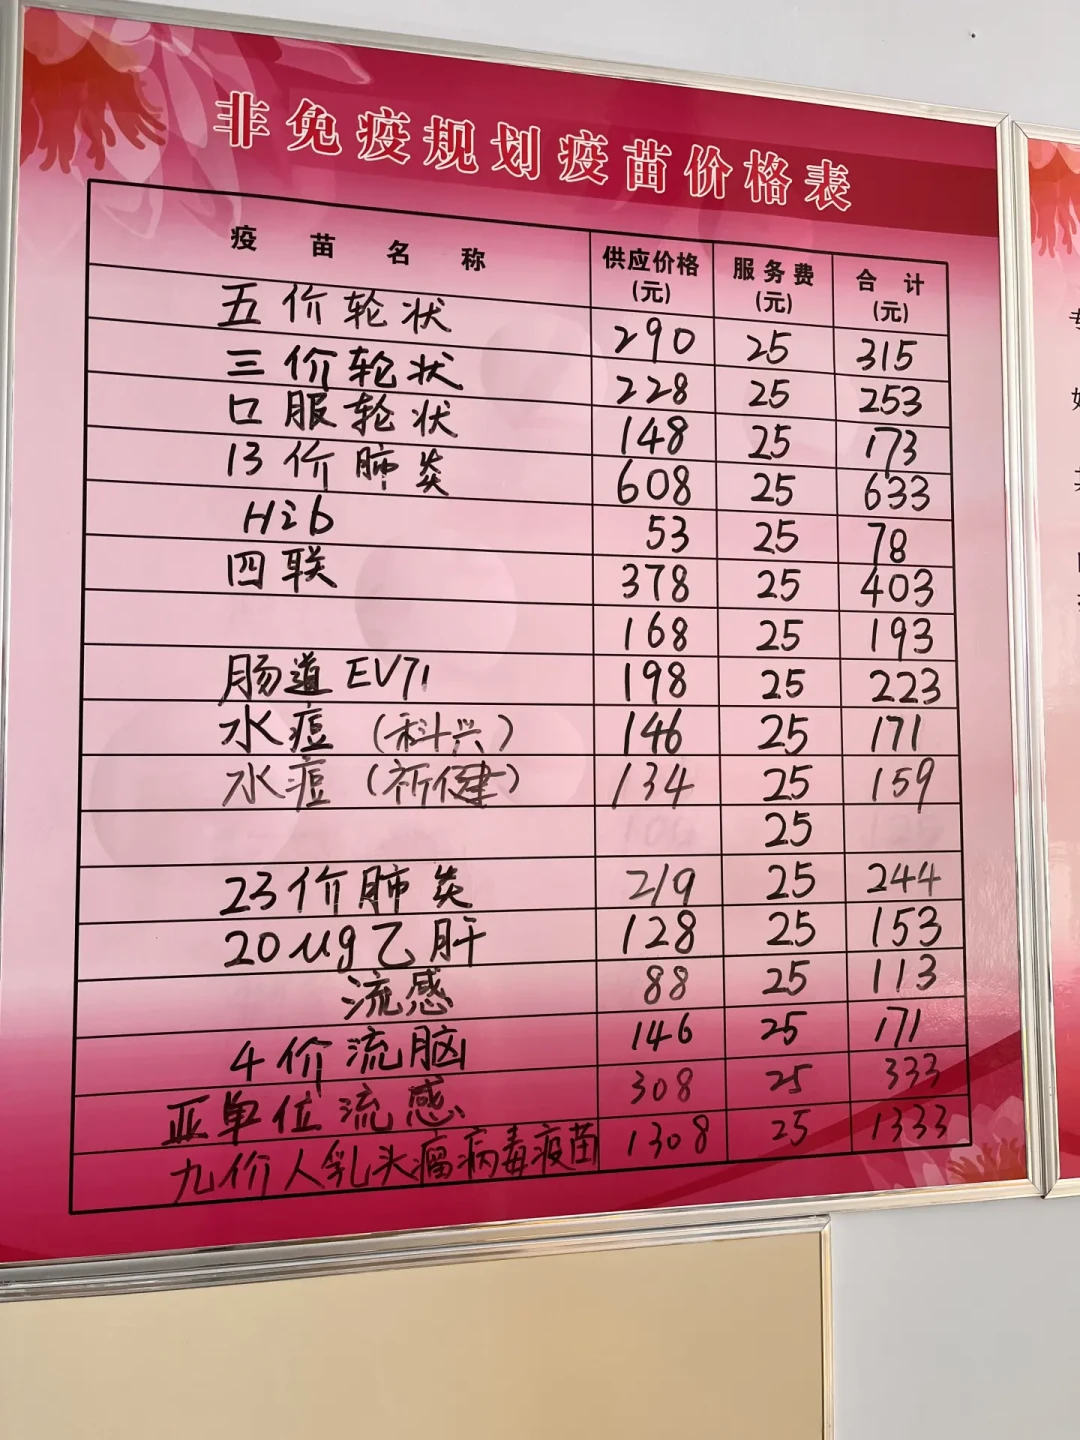 非免疫规划疫苗价格表
疫苗名称 供应价格(元) 服务费(元) 合计(元)
五价轮状 290 25 315
三价轮状 228 25 253
口服轮状 148 25 173
13价肺炎 608 25 633
Hib 53 25 78
四联 378 25 403
168 25 193
肠道EV71 198 25 223
水痘（科兴） 146 25 171
水痘（祈健） 134 25 159
25
23价肺炎 219 25 244
20μg乙肝 128 25 153
流感 88 25 113
4价流脑 146 25 171
亚单位流感 308 25 333
九价人乳头瘤病毒疫苗 1308 25 1333